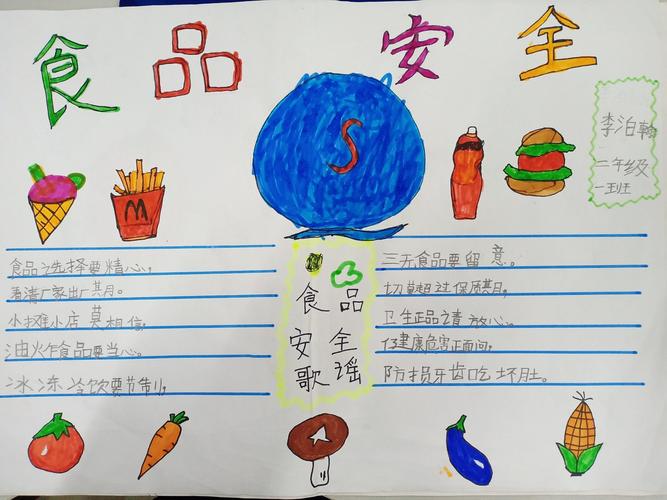 食品安全
S
李泊翰
二年级
一班
M
食品选择要精心,
看清厂家出厂期。
小摊小店莫相信,
油炸食品要当心。
冰冻冷饮要节制,
食品
安全
歌谣
三无食品要留意。
切莫超过保质期。
卫生正品之请放心。
健康危害正面问,
防损牙齿吃坏肚。